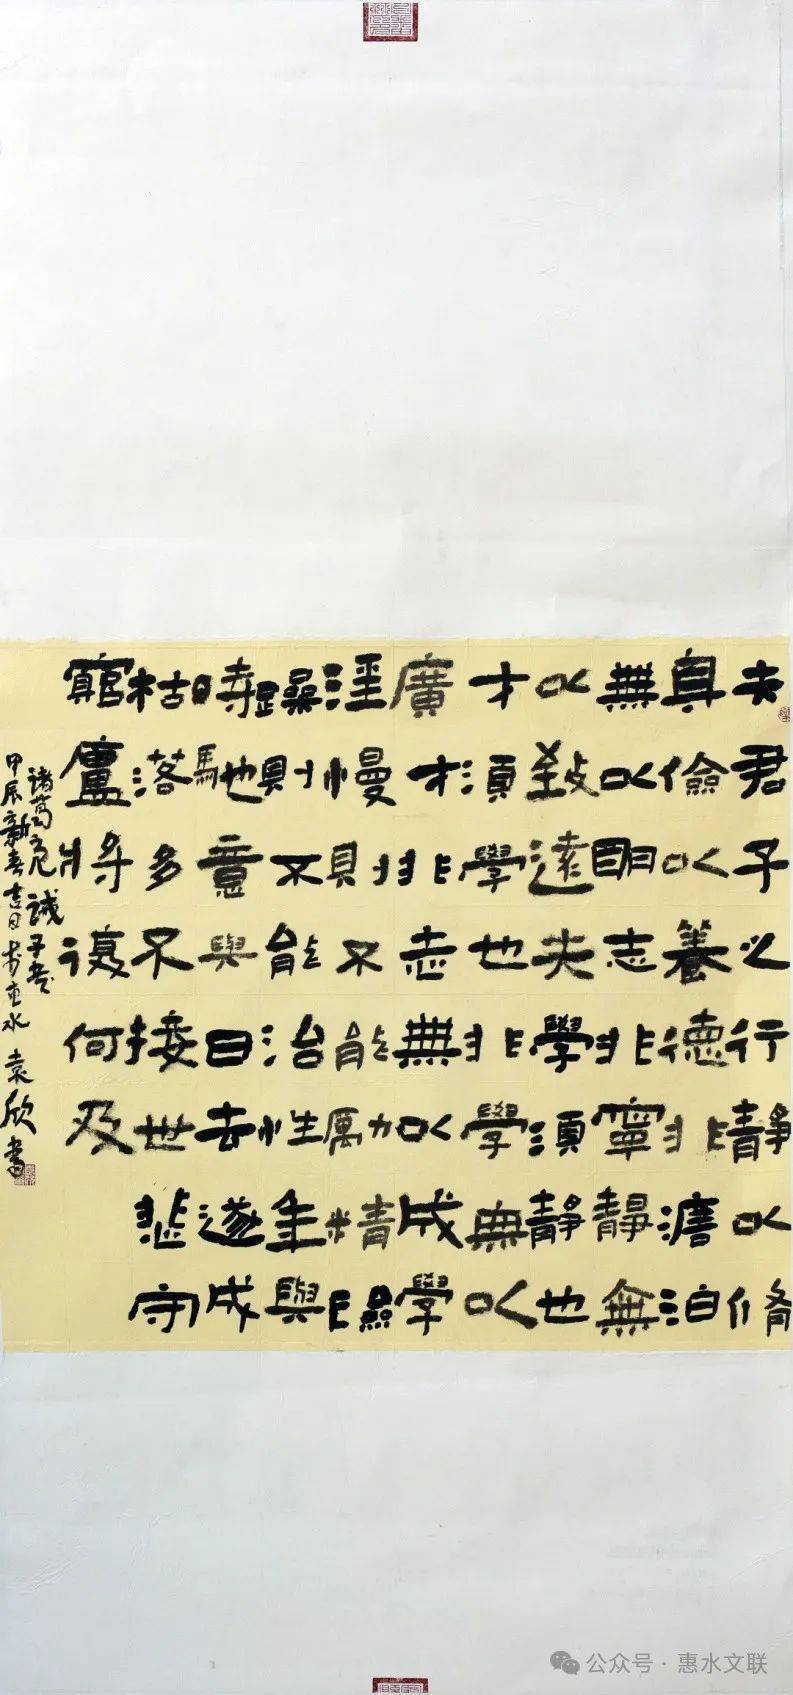 夫君子之行靜以脩
身儉以養德非澹泊
無以明志非寧靜無
以致遠夫學須靜也
才須學也非學無以
廣才非志無以成學
淫慢則不能勵精險
躁則不能治性年與
時馳意與日去遂成
枯落多不接世悲守
窮廬將復何及
诸葛亮诫子书
甲辰新春吉日于惠水 袁欣書
公众号 · 惠水文联